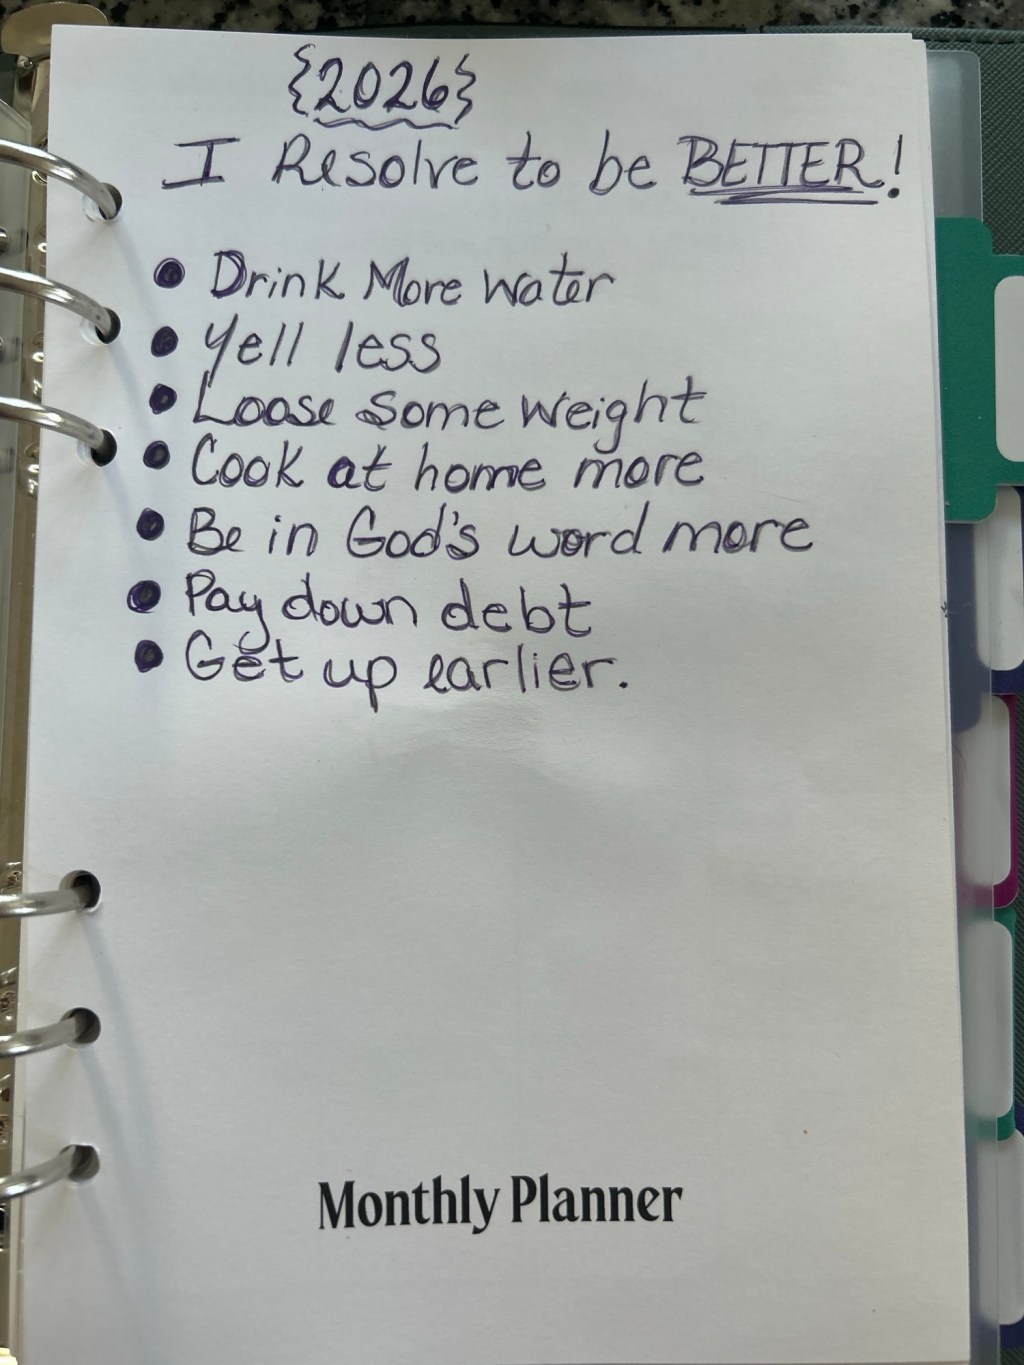 {2026}
I Resolve to be BETTER!
• Drink More Water
• Yell less
• Loose some weight
• Cook at home more
• Be in God's word more
• Pay down debt
• Get up earlier.
Monthly Planner